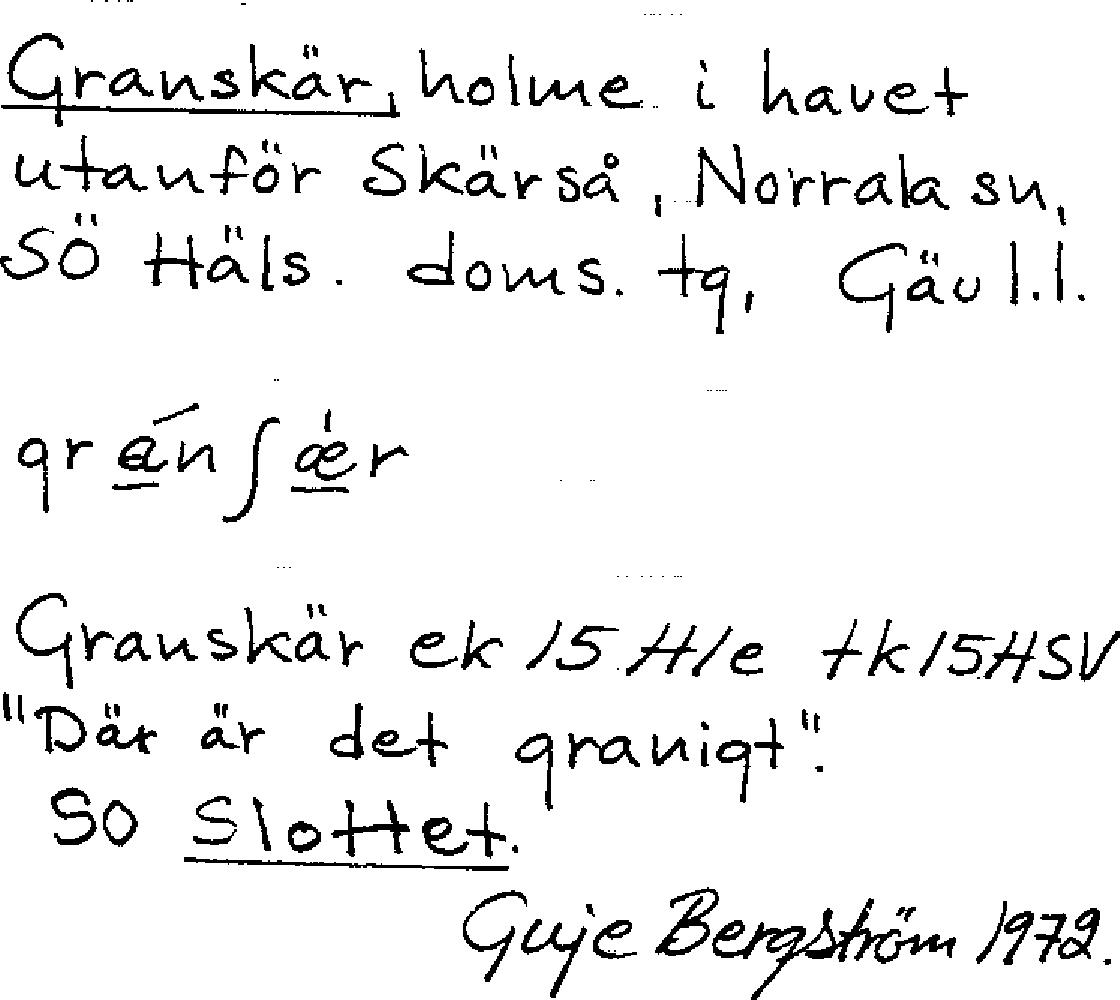 Granskär, holme i havet
utanför Skärså, Norrala sn,
SÖ Häls. doms. tg, Gävl.l.
grańʃǽr
Granskär ek 15 H1e tk 15HSV
"Där är det granigt".
SO Slottet.
Guje Bergström 1972.